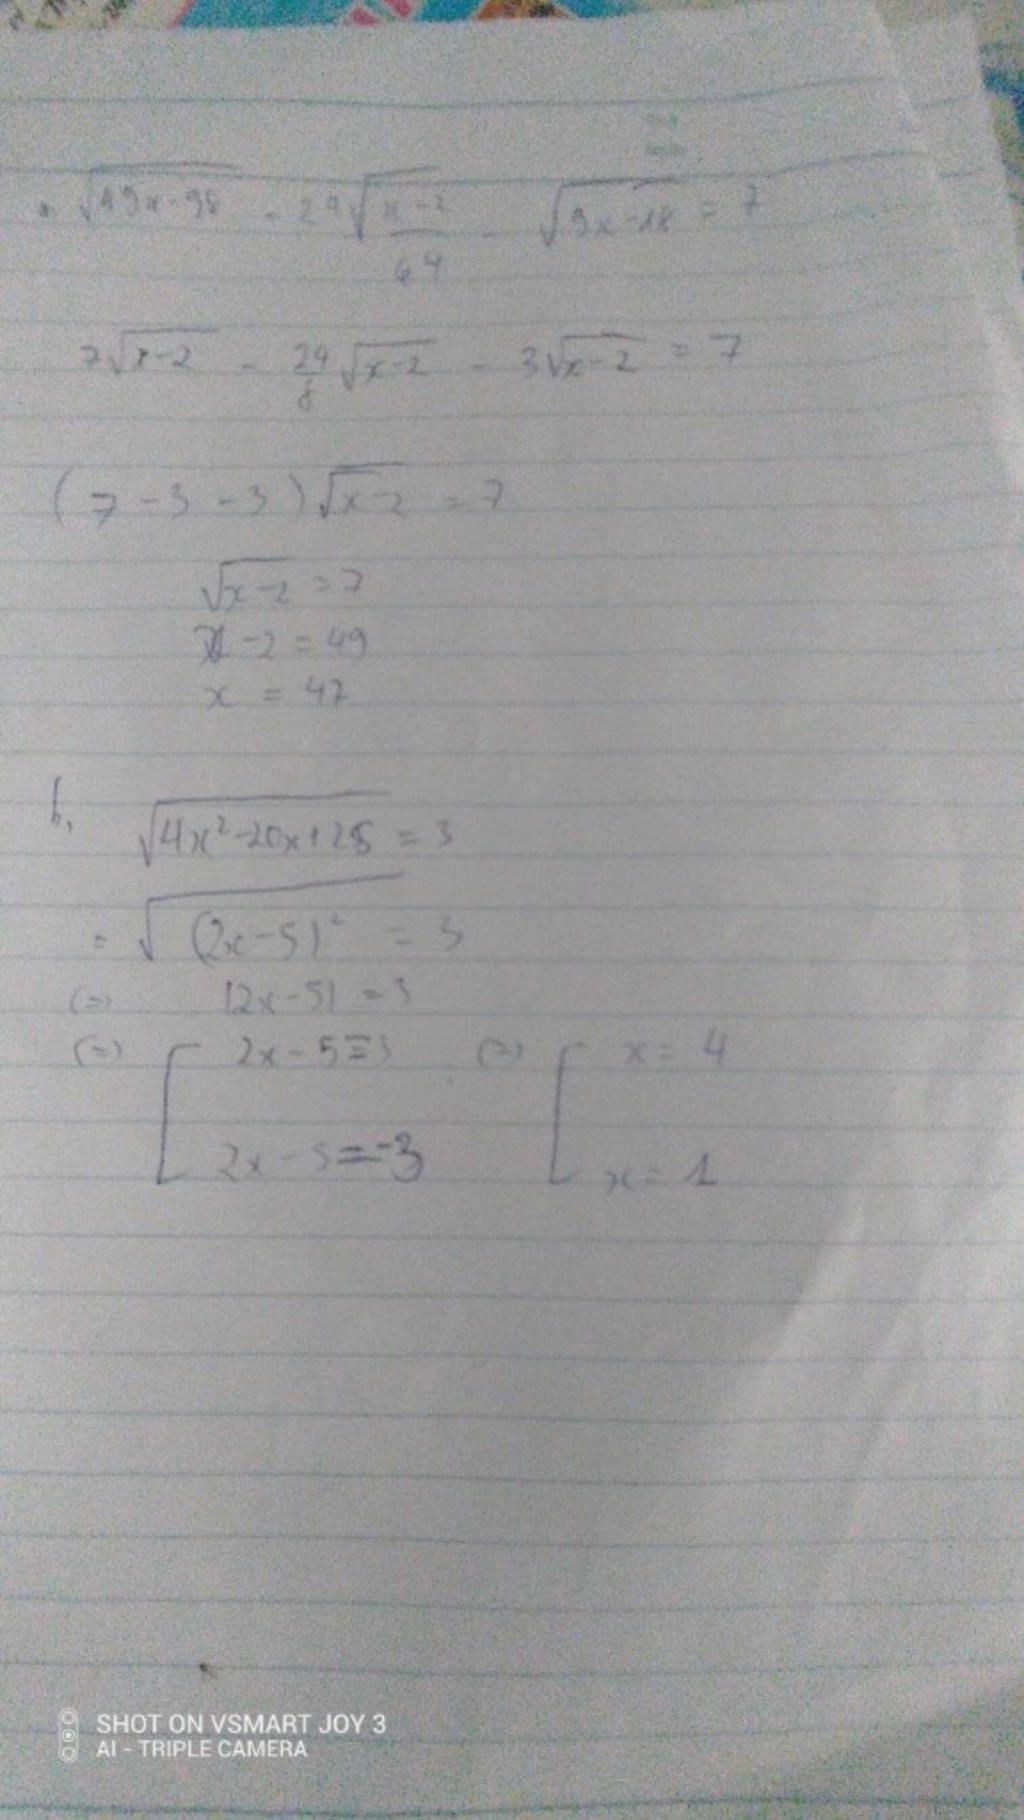 a. √(49x-98) - 24√((x-2)/64) - √(9x-18) = 7
7√(x-2) - 24/8 √(x-2) - 3√(x-2) = 7
(7 - 3 - 3)√(x-2) = 7
√(x-2) = 7
x - 2 = 49
x = 47
b, √(4x²-20x+25) = 3
= √((2x-5)²) = 3
(=) |2x-5| = 3
(=) [ 2x-5=3 (=) [ x = 4
2x-5=-3 x = 1
SHOT ON VSMART JOY 3
AI - TRIPLE CAMERA